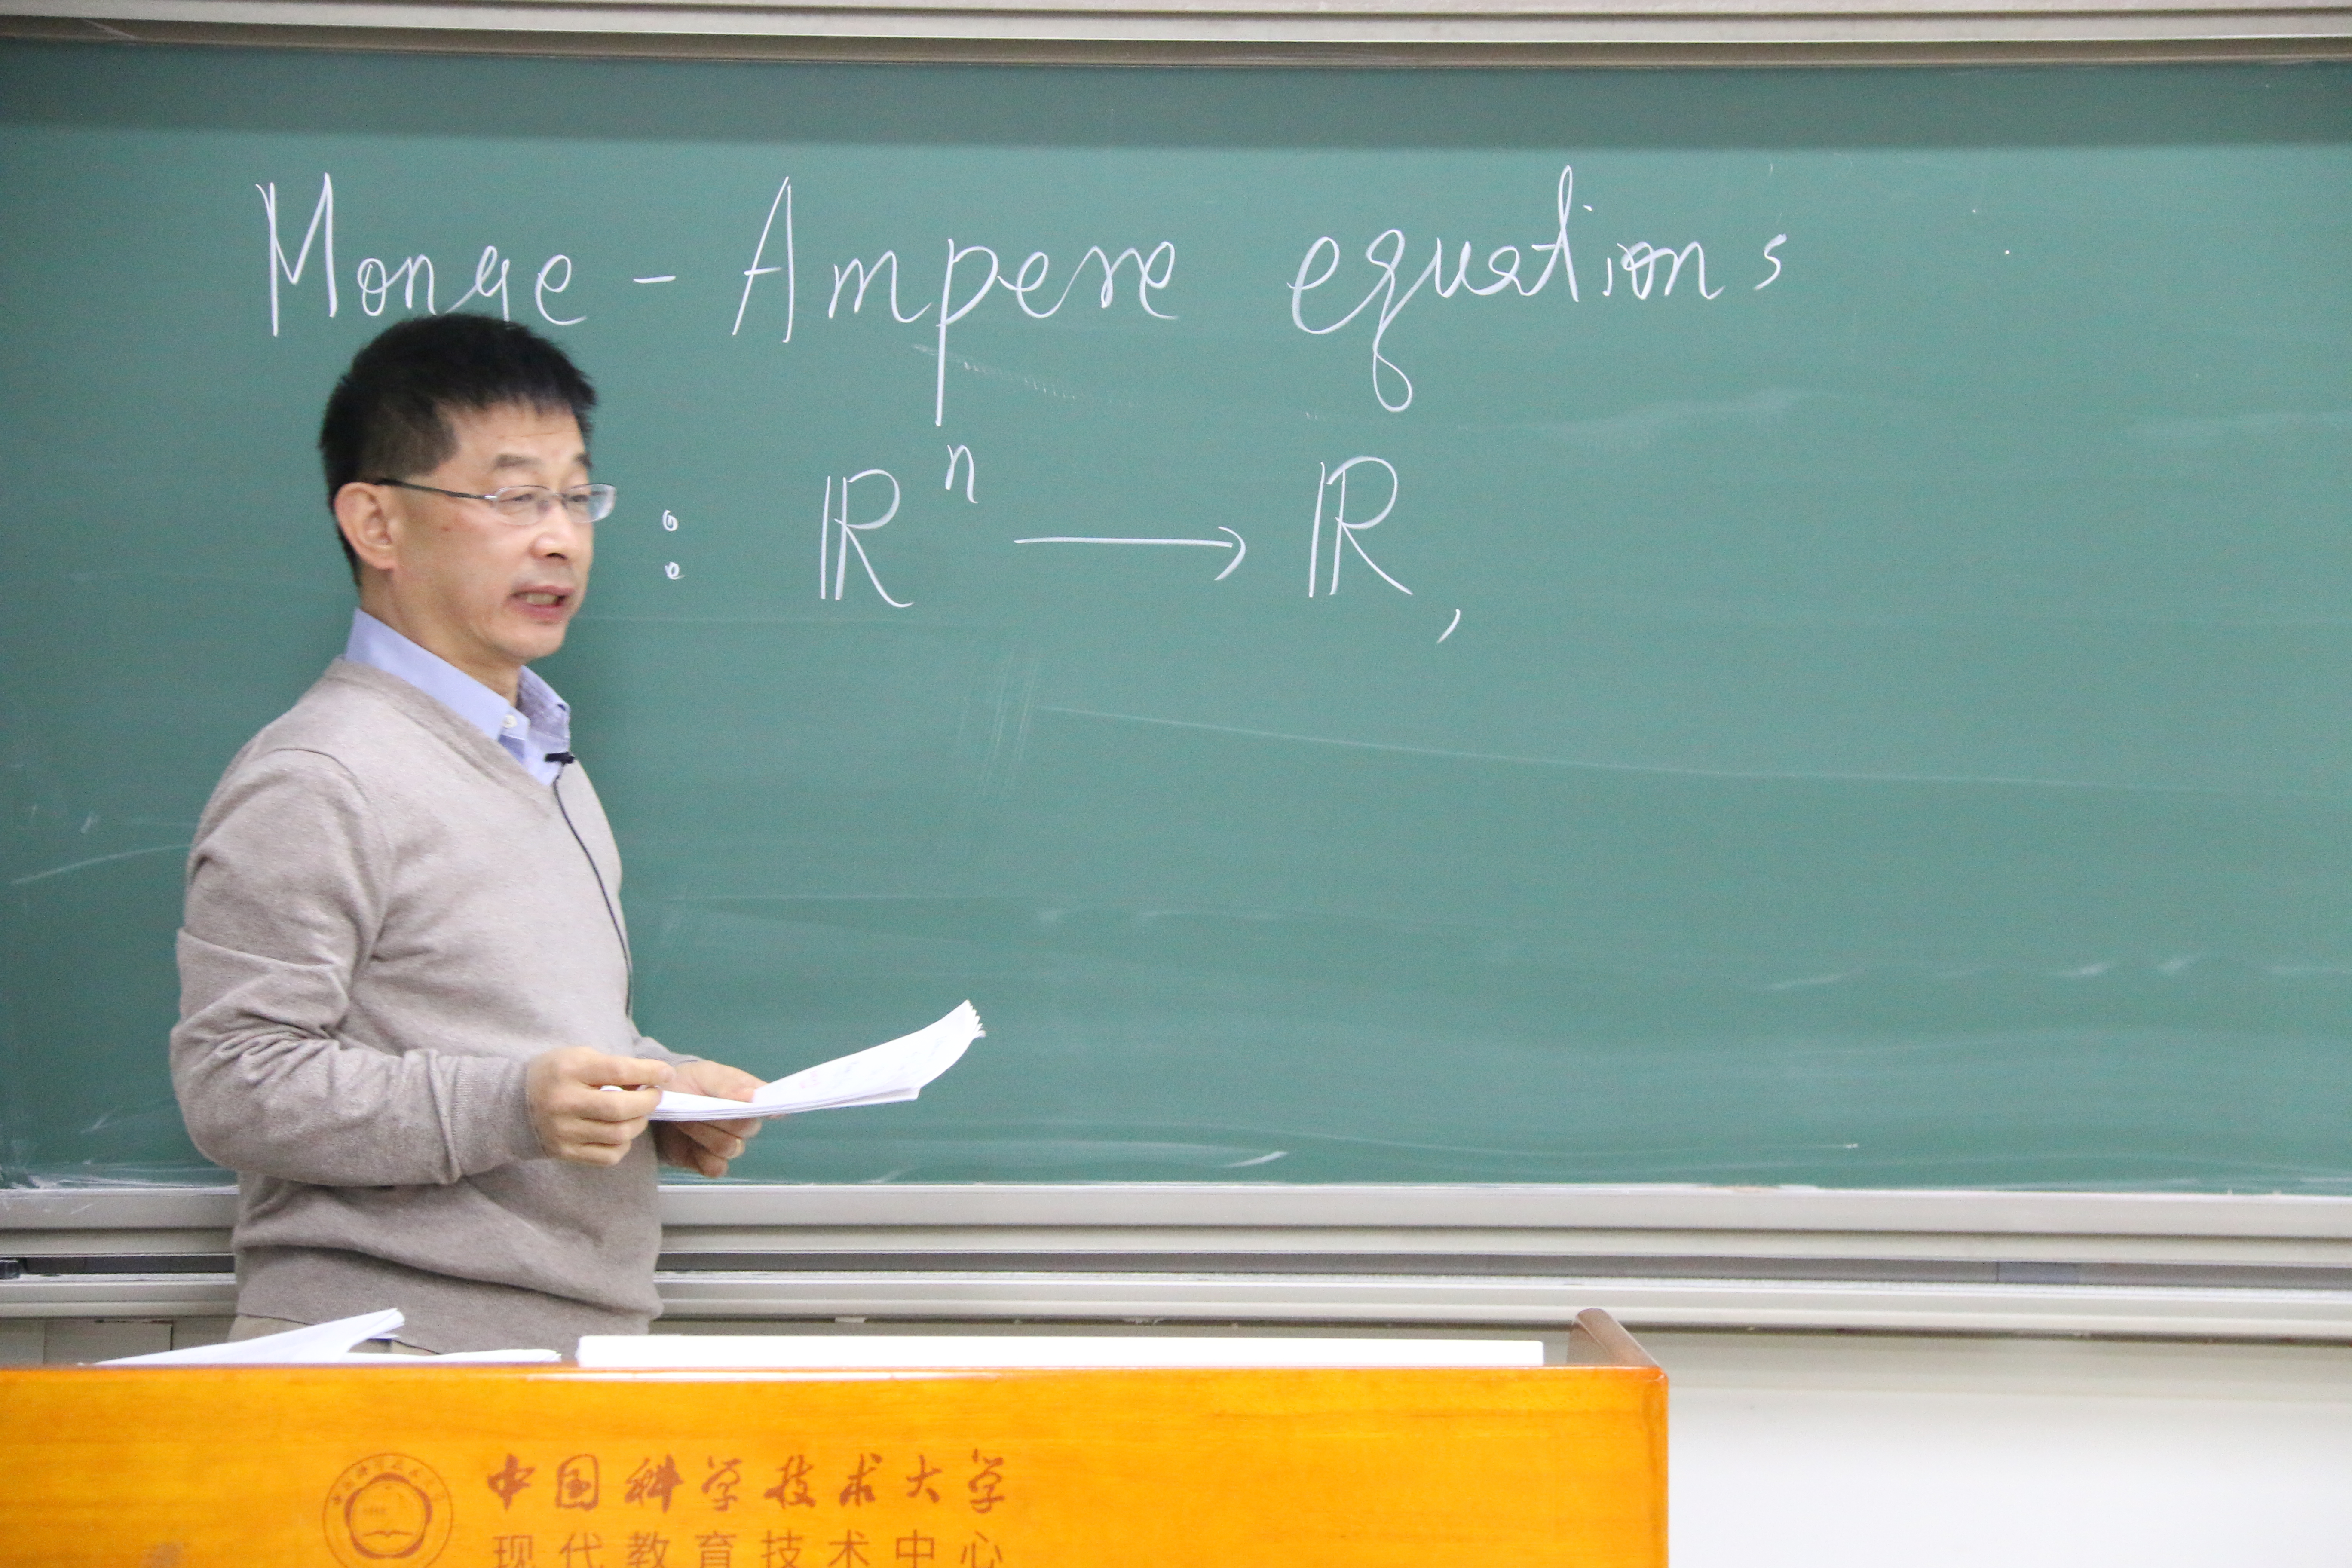 Monge - Ampere equations
: ℝⁿ ⟶ ℝ,
中国科学技术大学
现代教育技术中心